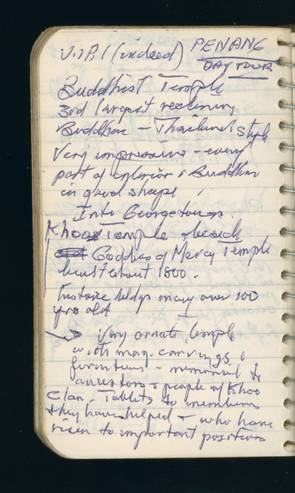 V.I.P.! (indeed) PENANG
DAY TOUR
Buddhist Temple
3rd largest reclining
Buddha - Thailand style
Very impressive - every
part of interior & Buddha
in good shape,
Into Georgetown.
Khoo Temple beside
Goddess of Mercy Temple
built about 1800.
historic bldgs many over 100
yrs old
→ Very ornate temple
with many carvings &
furniture - memorial to
ancestors & people of Khoo
Clan. Tablets to members
they have helped - who have
risen to important positions